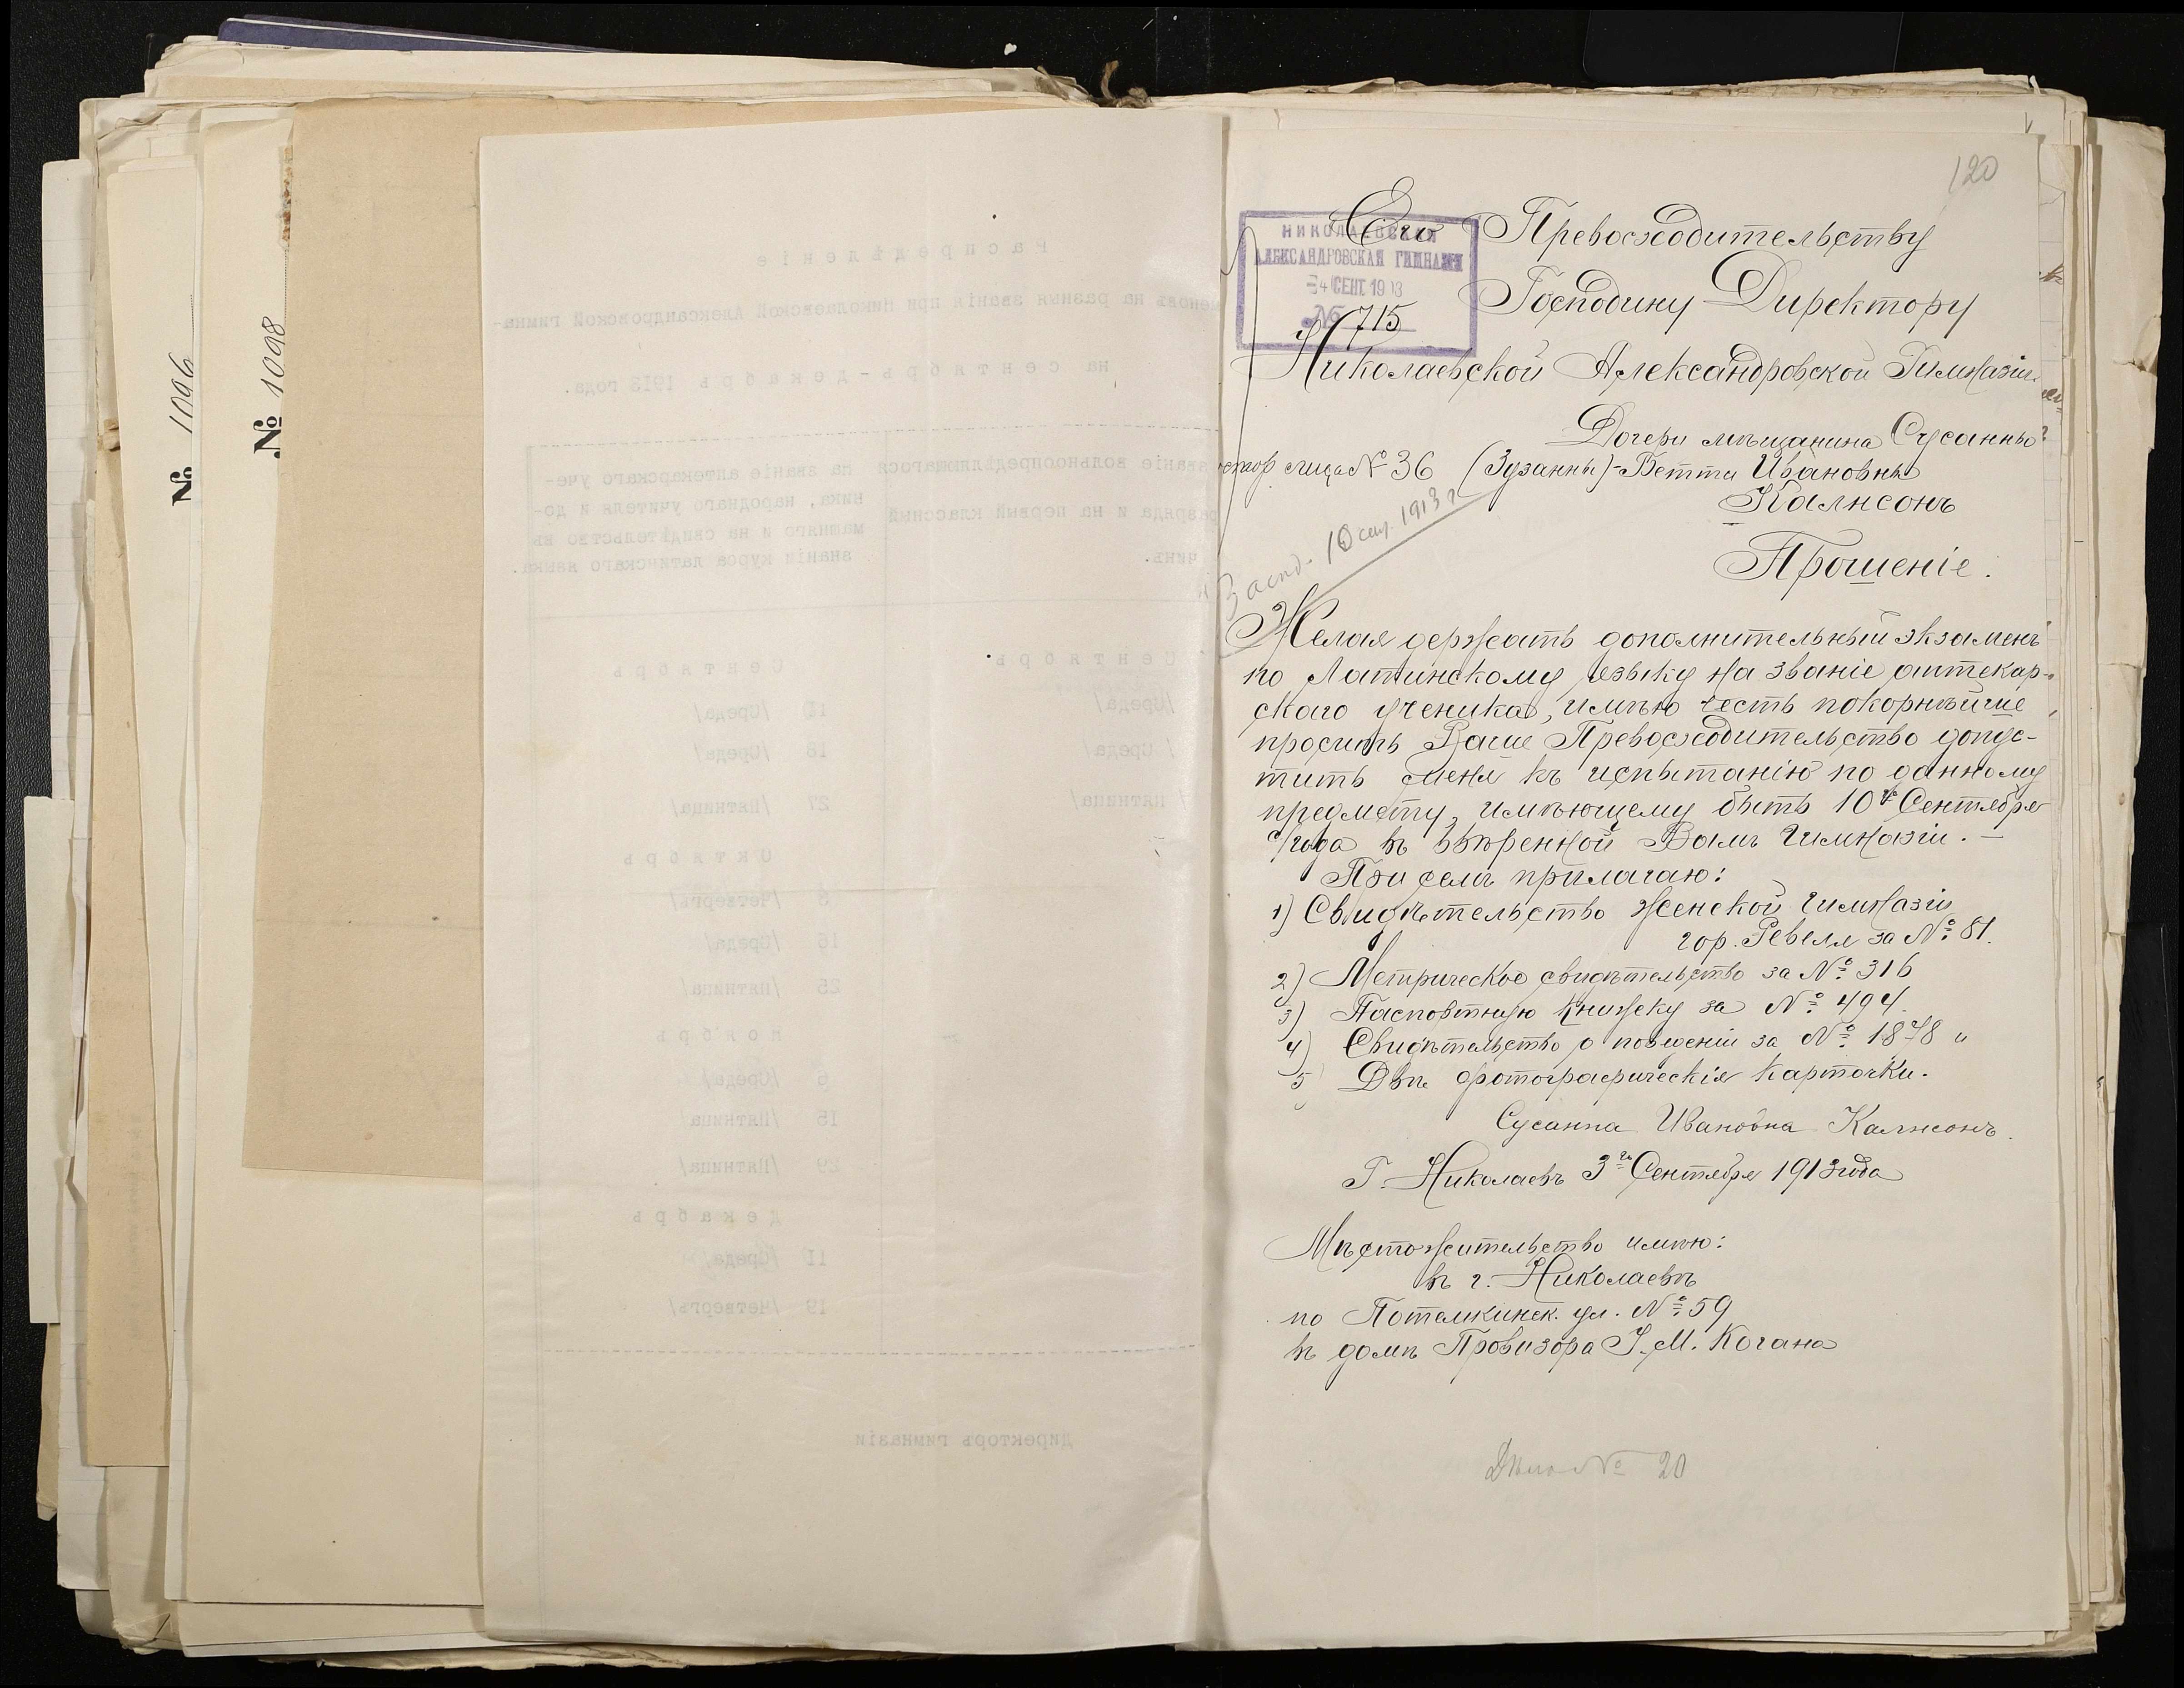 № 1096
№ 1098
Распредѣленіе
на разныя званія при Николаевской Александровской гимна-
на сентябрь-декабрь 1913 года.
званіе вольноопредѣляющагося
разряда и на первый классный
чинъ.
на званіе аптекарскаго уче-
ника, народнаго учителя и до-
машняго и на свидѣтельство въ
знаніи курса латинскаго языка.
Сентябрь
/Среда/
/Среда/
/пятница/
Сентябрь
/Среда/
18 /Среда/
27 /Пятница/
Октябрь
/Четвергъ/
16 /Среда/
25 /Пятница/
Ноябрь
6 /Среда/
15 /Пятница/
29 /Пятница/
Декабрь
11 /Среда/
19 /Четвергъ/
Директоръ гимназіи
120
НИКОЛАЕВСКАЯ
АЛЕКСАНДРОВСКАЯ ГИМНАЗІЯ
-4 СЕНТ. 1913
№ 715
Его Превосходительству
Господину Директору
Николаевской Александровской Гимназіи
Дочери мѣщанина Сусанны
№ 36 (Зузанны)-Бетти Ивановны
Калнсонъ
10 сент. 1913 г.
Прошеніе.
Желая держать дополнительный экзаменъ
по Латинскому языку на званіе аптекар-
скаго ученика, имѣю честь покорнѣйше
просить Ваше Превосходительство допус-
тить меня къ испытанію по данному
предмету, имѣющему быть 10го Сентября
с/года въ ввѣренной Вамъ Гимназіи. —
При семъ прилагаю:
1) Свидѣтельство Женской Гимназіи
гор. Ревеля за № 81.
2) Метрическое свидѣтельство за № 316
3) Паспортную книжку за № 494.
4) Свидѣтельство о поведеніи за № 1878 и
5) Двѣ фотографическія карточки.
Сусанна Ивановна Калнсонъ.
Г. Николаевъ 3го Сентября 1913 года
Мѣстожительство имѣю:
въ г. Николаевѣ
по Потемкинск. ул. № 59
въ домѣ Провизора І. М. Когана
Дѣло № 20